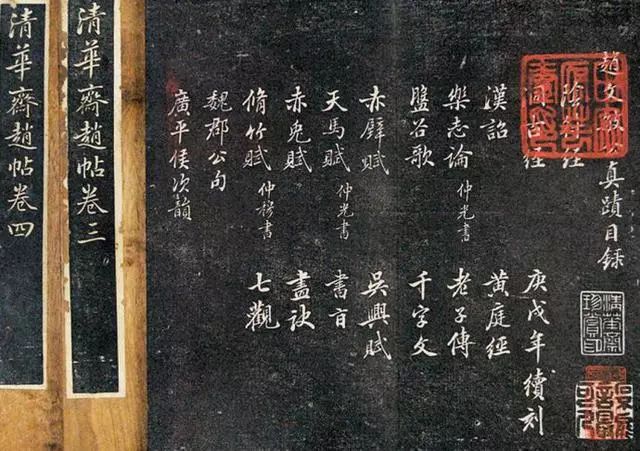 趙文敏真蹟目録
陰符經
洞古經
庚戌年續刻
漢詔
黄庭經
樂志論 仲光書
老子傳
盤谷歌
千字文
赤壁賦
吳興賦
天馬賦 仲光書
書百
赤兔賦
畫訣
脩竹賦 仲穆書
七觀
魏郡公
廣平侯次韻
清華齋珍賞印
清華齋趙帖卷三
清華齋趙帖卷四